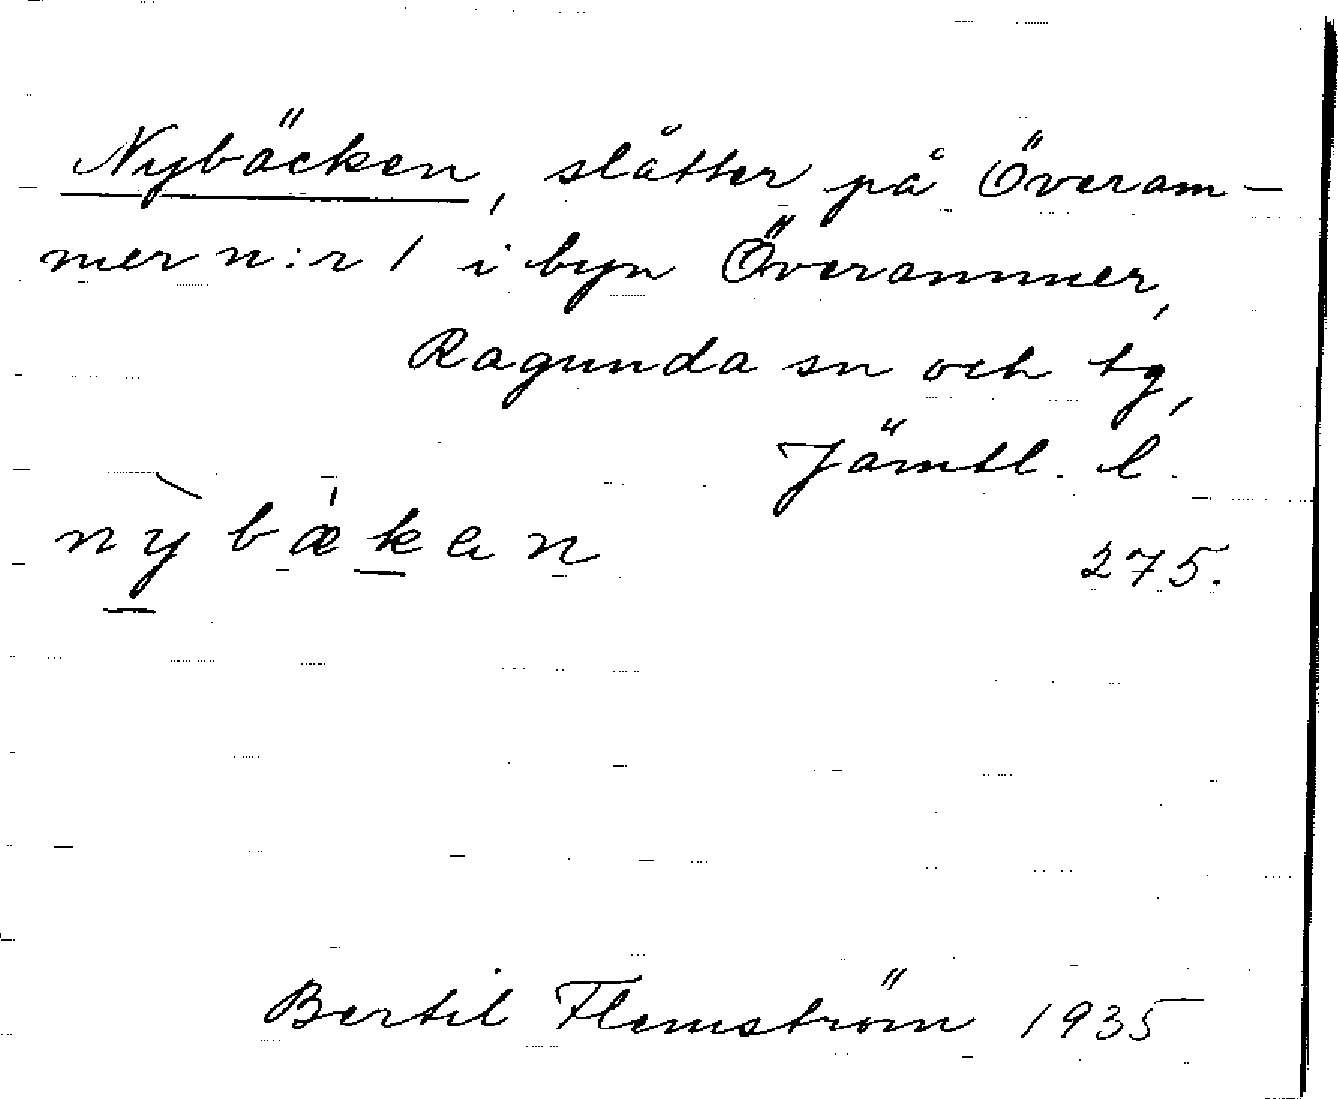 Nybäcken, slåtter på Överam-
mer n:r 1 i byn Överammer,
Ragunda sn och tg,
Jämtl. l.
nỳbækan
275.
Bertil Flemström 1935